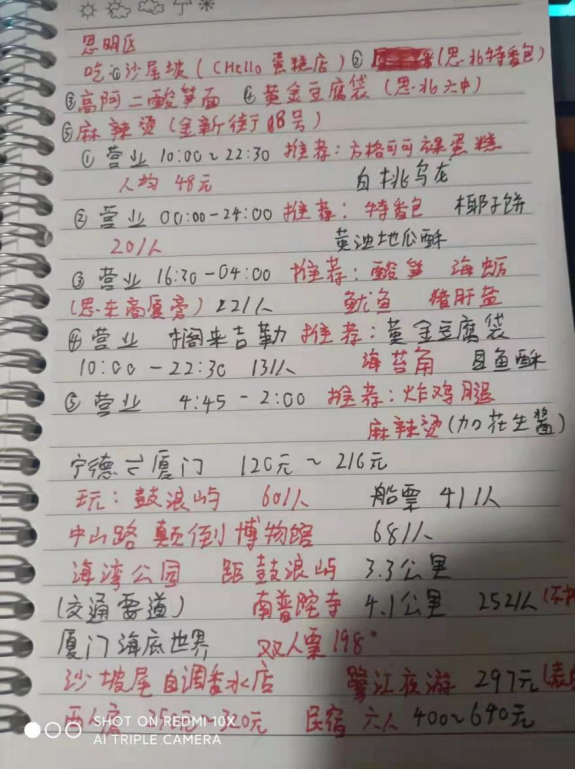 思明区
吃①沙尾坡(CHello 蛋糕店)② (思.北特香包)
③高阿二酸笋面 ④黄金豆腐袋(思.北六中)
⑤麻辣烫(金新街98号)
①营业 10:00~22:30 推荐:方格可可裸蛋糕
人均 48元 白桃乌龙
②营业 00:00-24:00 推荐:特香包 椰子饼
20/人 黄油地瓜酥
③营业 16:30-04:00 推荐:酸笋 海蛎
(思.东高厦旁) 22/人 鱿鱼 猪肝盐
④营业 推荐:黄金豆腐袋
10:00-22:30 13/人 海苔角 目鱼酥
⑤营业 4:45-2:00 推荐:炸鸡腿
麻辣烫(加花生酱)
宁德⇌厦门 120元~216元
玩:鼓浪屿 60/人 船票 41/人
中山路 颠倒博物馆 68/人
海湾公园 距鼓浪屿 3.3公里
(交通要道) 南普陀寺 4.1公里 252/人
厦门海底世界 双人票198
沙坡尾自调香水店 鹭江夜游 297元
320元 民宿 六人 400~640元
SHOT ON REDMI 10X
AI TRIPLE CAMERA